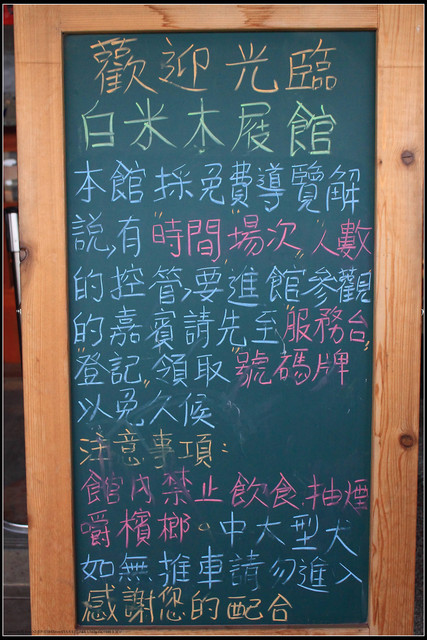 歡迎光臨
白米木展館
本館採"免費"導覽解
說,有"時間"場次"人數"
的控管,要進館參觀
的嘉賓請先至"服務台"
"登記",領取"號碼牌"
以免久候
注意事項:
館內禁止飲食.抽煙
嚼檳榔。中大型犬
如無推車請勿進入
感謝您的配合